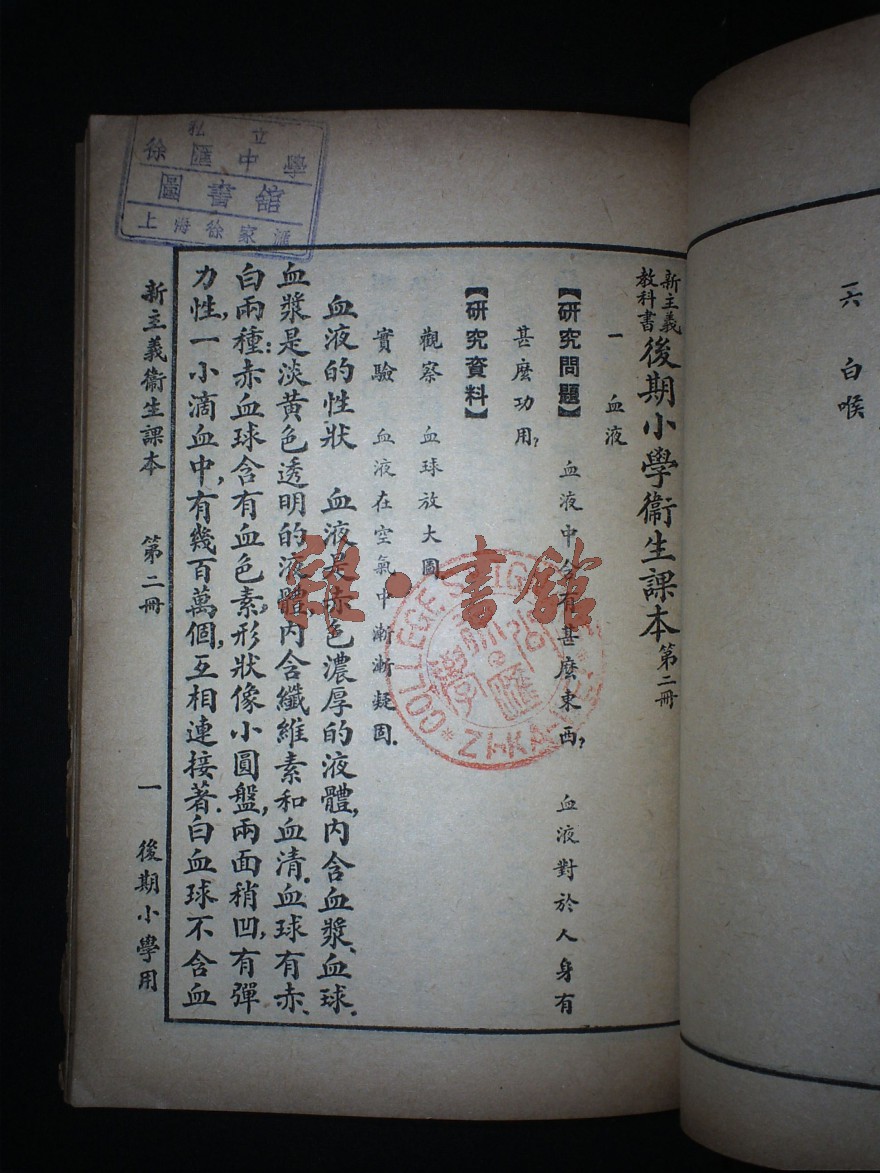 一六 白喉
新主義教科書 後期小學衞生課本 第二冊
一 血液
【研究問題】 血液中含有甚麼東西？ 血液對於人身有
甚麼功用？
【研究資料】
觀察 血球放大圖
實驗 血液在空氣中漸漸凝固．
血液的性狀 血液是赤色濃厚的液體，內含血漿、血球．
血漿是淡黃色透明的液體，內含纖維素和血清．血球有赤、
白兩種：赤血球含有血色素，形狀像小圓盤，兩面稍凹，有彈
力性，一小滴血中，有幾百萬個，互相連接著．白血球不含血
新主義衞生課本 第二冊 一 後期小學用
私立
徐匯中學
圖書館
上海徐家滙
COLLEGE ZI-KA
書館